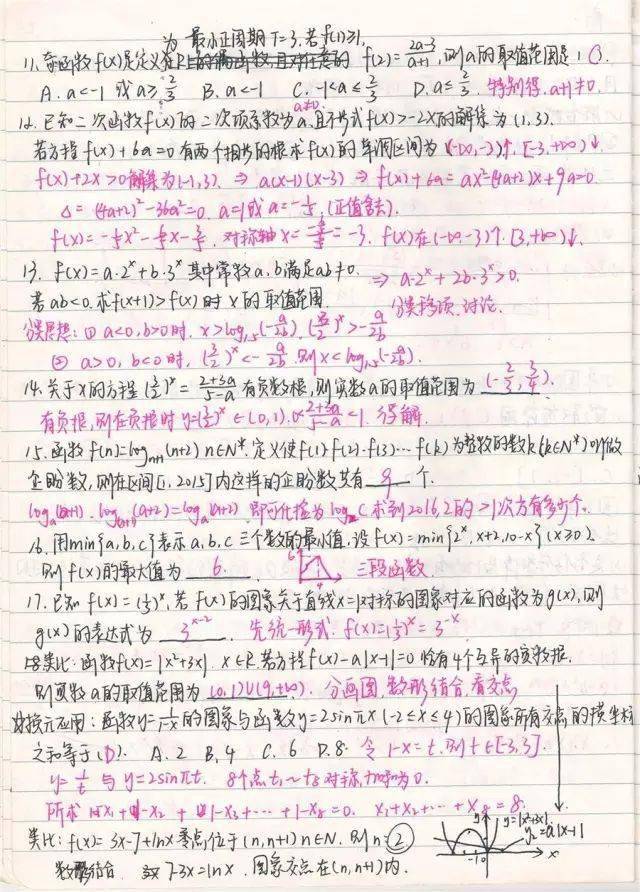 为 最小正周期T=3,若f(1)>1,
11.奇函数f(x)是定义在R上的 f(2)=(2a-3)/(a+1),则a的取值范围是(C)
A. a<-1 或a>2/3 B. a<-1 C. -1<a≤2/3 D. a≤2/3. 特别得, a+1≠0.
12.已知二次函数f(x)的二次项系数为a,且不等式f(x)>-2x的解集为(1,3).
a≠0
若方程f(x)+6a=0有两个相等的根求f(x)的单调区间为(-∞,-3)↑, [-3,+∞)↓
f(x)+2x>0解集为(1,3). ⇒ a(x-1)(x-3) ⇒ f(x)+6a=ax²-(4a+2)x+9a=0
Δ=(4a+2)²-36a²=0. a=1或a=-1/5, (正值舍去).
f(x)=-1/5x²-6/5x-3/5, 对称轴x= =-3. f(x)在(-∞,-3)↑, [3,+∞)↓.
13. f(x)=a·2ˣ+b·3ˣ 其中常数a,b满足ab≠0. ⇒ a·2ˣ+2b·3ˣ>0.
若ab<0,求f(x+1)>f(x)时x的取值范围. 分类移项,讨论.
分类思想:① a<0,b>0时, x>log₁.₅(-a/2b), (3/2)ˣ>-a/2b
② a>0, b<0时, (3/2)ˣ<-a/2b 则x<log₁.₅(-a/2b).
14.关于x的方程(3/2)ˣ=(2+3a)/(5-a)有负数根,则实数a的取值范围为(-2/3,3/4).
有负根,则在负根时y=(3/2)ˣ∈(0,1),0<(2+3a)/(5-a)<1. 得解.
15.函数f(n)=logₙ₊₁(n+2) n∈N*,定义使f(1)·f(2)·f(3)…f(k)为整数的数k(k∈N*)叫做
企盼数,则在区间[1,2015]内这样的企盼数共有 9 个.
logₐ(a+1)·logₐ₊₁(a+2)=logₐ(a+2) 即可化简为log₂C 求到2016,2的>1次方有多少个.
16.用min{a,b,c}表示a,b,c三个数的最小值,设f(x)=min{2ˣ,x+2,10-x}(x≥0).
则f(x)的最大值为 6 . 6 4 三段函数.
17.已知f(x)=(1/3)ˣ,若f(x)的图象关于直线x=1对称的图象对应的函数为g(x),则
g(x)的表达式为 3ˣ⁻² . 先统一形式: f(x)=(1/3)ˣ=3⁻ˣ
18.类比:函数f(x)=|x²+3x|, x∈R.若方程f(x)-a|x-1|=0恰有4个互异的实数根.
则实数a的取值范围为 (0,1)∪(9,+∞). 分画图,数形结合,看交点
换元应用:函数y=1/(1-x)的图象与函数y=2sinπx(-2≤x≤4)的图象所有交点的横坐标
之和等于(D). A. 2 B. 4 C. 6 D. 8. 令1-x=t,则t∈[-3,3].
y=1/t 与y=2sinπt. 8个点t₁~t₈对称,加和为0.
所求1-x₁+1-x₂+1-x₃+…+1-x₈=0. x₁+x₂+…+x₈=8.
类比: f(x)=3x-7+lnx零点位于(n,n+1) n∈N, 则n=②
y₁=|x²+3x|
y₂=a|x-1|
数形结合 7-3x=lnx, 图象交点在(n,n+1)内.
-1 0 x